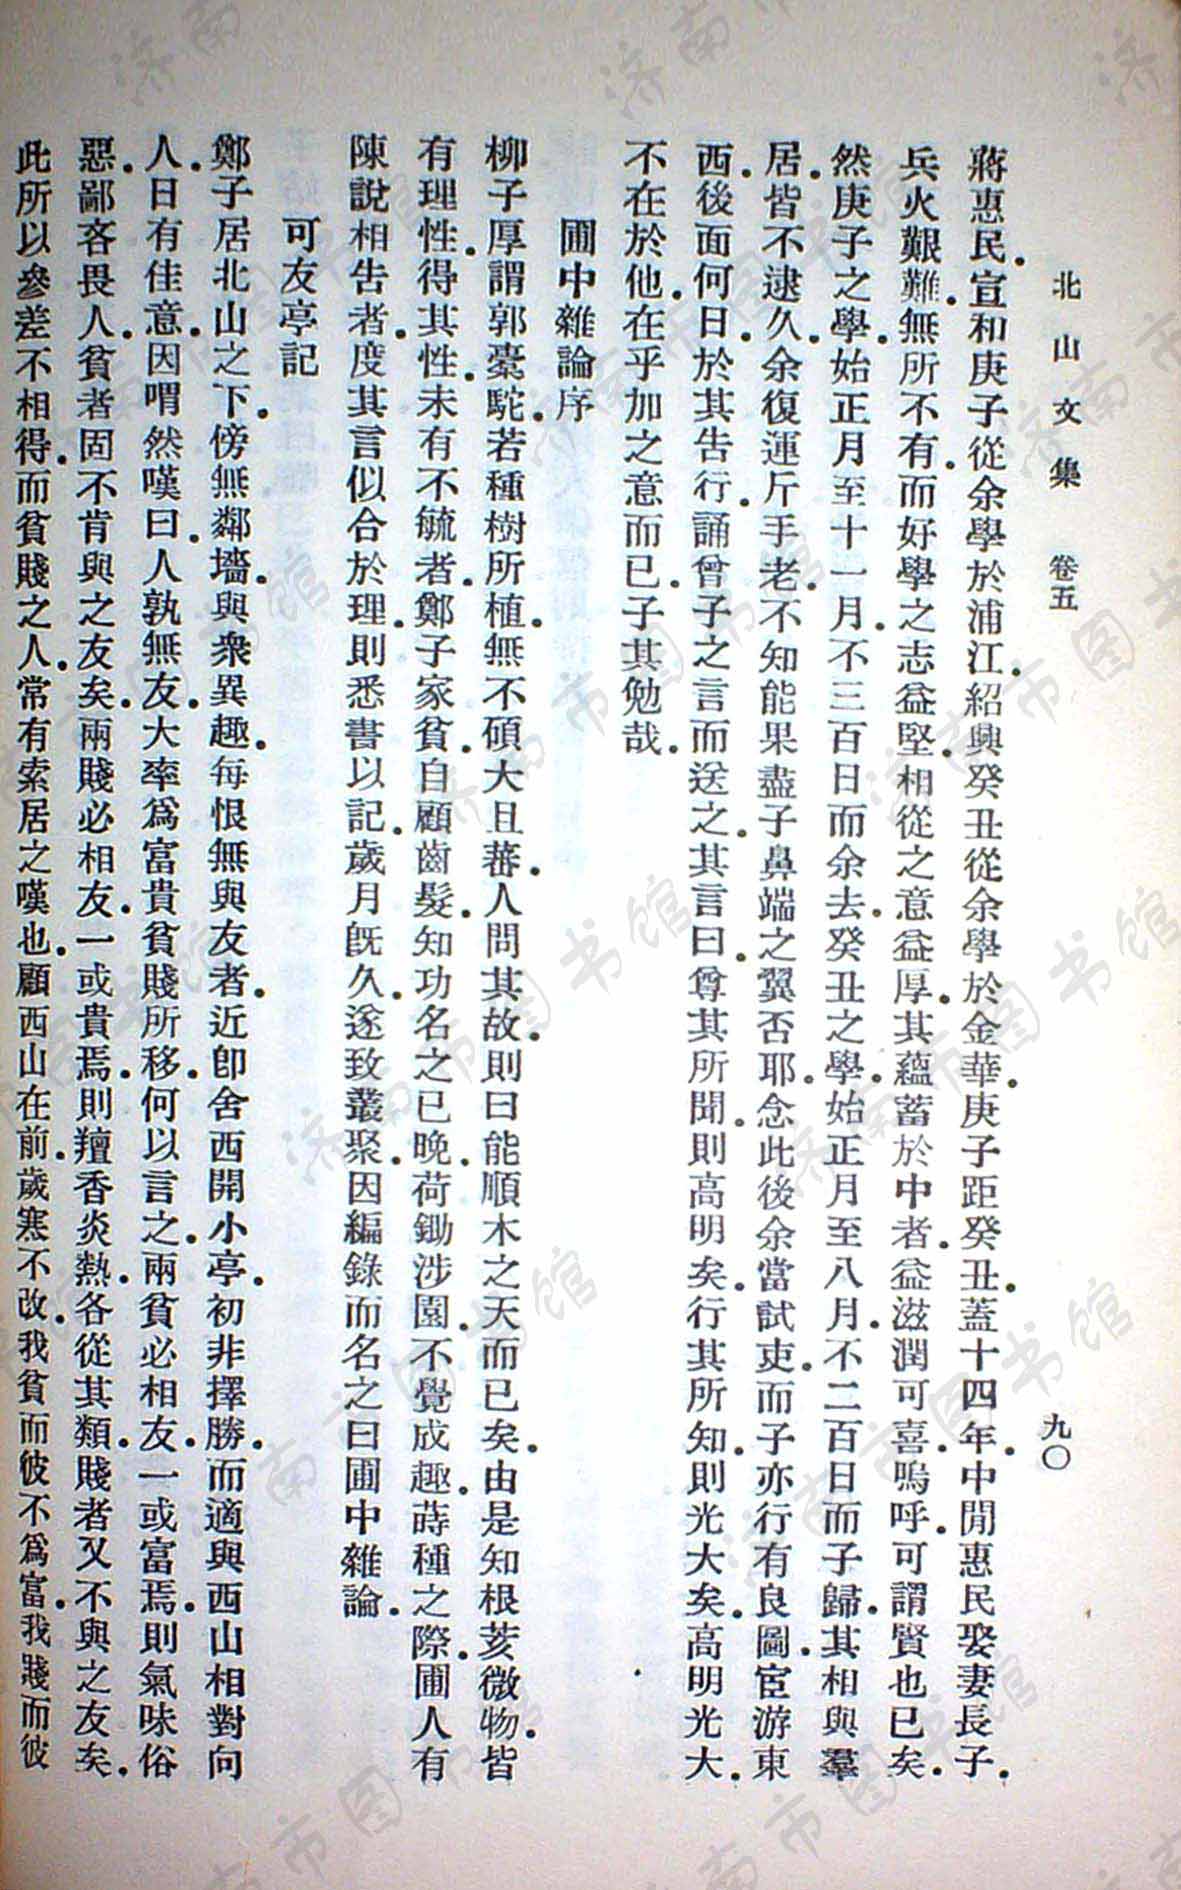 北山文集　卷五　九〇
蔣惠民宣和庚子從余學於浦江紹興癸丑從余學於金華庚子距癸丑蓋十四年中閒惠民娶妻長子
兵火艱難無所不有而好學之志益堅相從之意益厚其蘊蓄於中者益滋潤可喜嗚呼可謂賢也已矣
然庚子之學始正月至十一月不三百日而余去癸丑之學始正月至八月不二百日而子歸其相與羣
居皆不逮久余復運斤手老不知能果盡子鼻端之翼否耶念此後余當試吏而子亦行有良圖宦游東
西後面何日於其告行誦曾子之言而送之其言曰尊其所聞則高明矣行其所知則光大矣高明光大
不在於他在乎加之意而已子其勉哉
圃中雜論序
柳子厚謂郭橐駝若種樹所植無不碩大且蕃人問其故則曰能順木之天而已矣由是知根荄微物皆
有理性得其性未有不毓者鄭子家貧自顧齒髮知功名之已晚荷鋤涉園不覺成趣蒔種之際圃人有
陳說相告者度其言似合於理則悉書以記歲月旣久遂致叢聚因編錄而名之曰圃中雜論
可友亭記
鄭子居北山之下傍無鄰墻與衆異趣每恨無與友者近卽舍西開小亭初非擇勝而適與西山相對向
人日有佳意因喟然嘆曰人孰無友大率爲富貴貧賤所移何以言之兩貧必相友一或富焉則氣味俗
惡鄙吝畏人貧者固不肯與之友矣兩賤必相友一或貴焉則羶香炎熱各從其類賤者又不與之友矣
此所以參差不相得而貧賤之人常有索居之嘆也顧西山在前歲寒不改我貧而彼不爲富我賤而彼
济南市图书馆